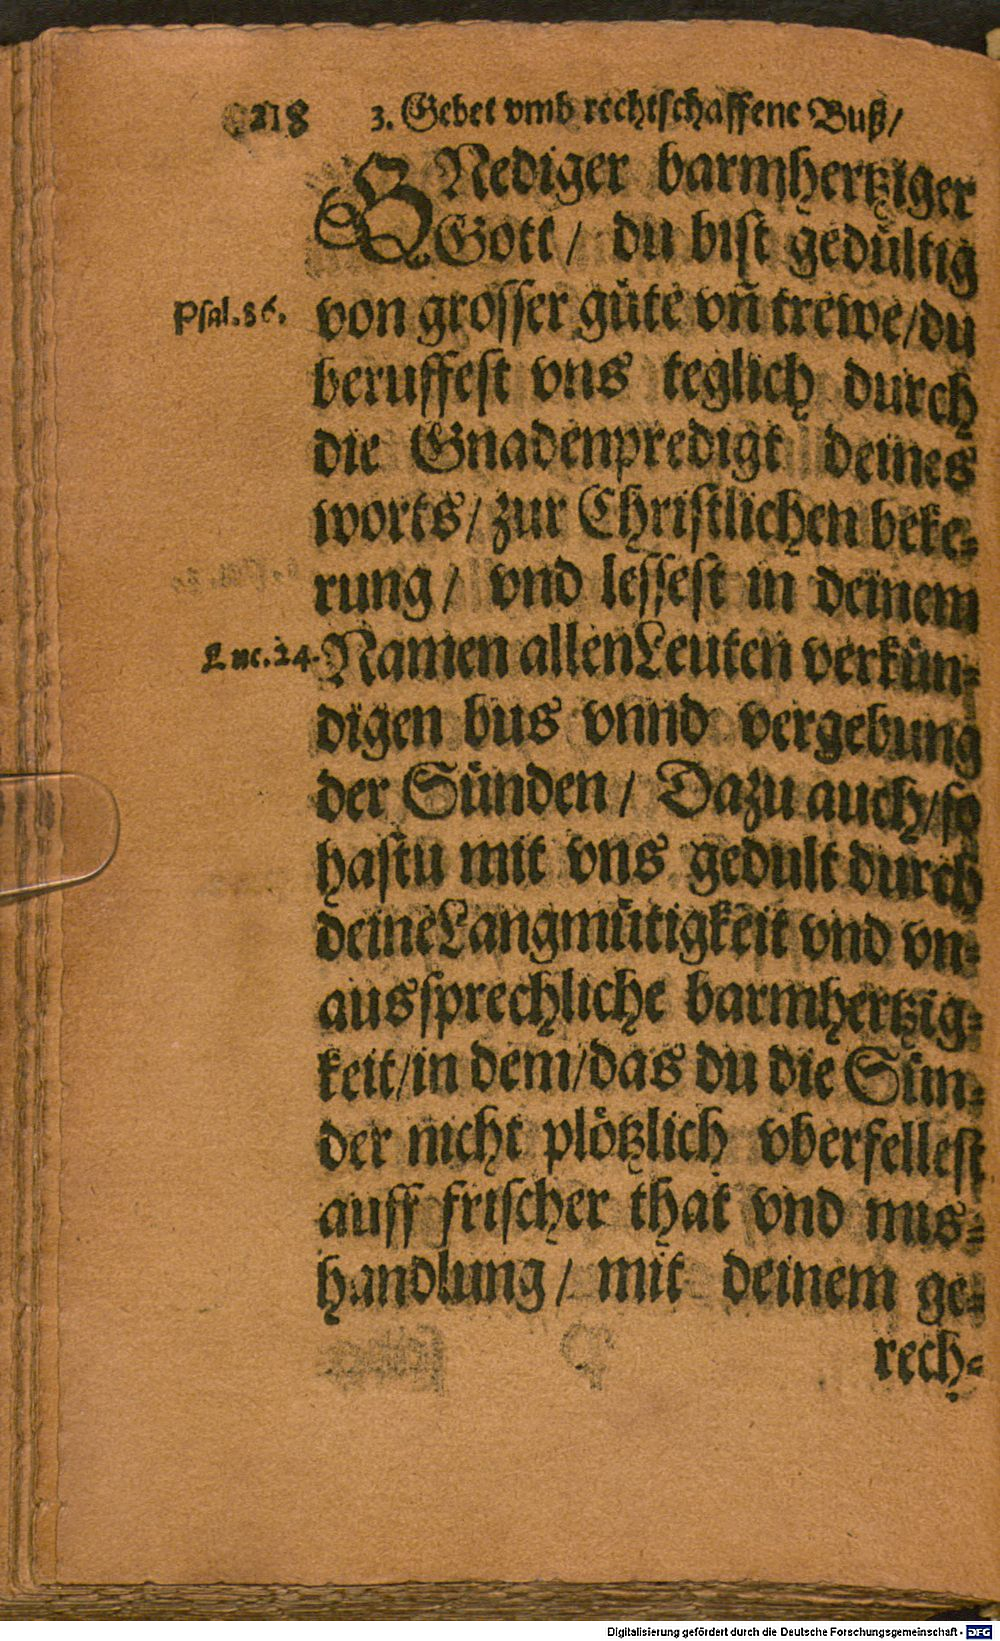 218 3. Gebet vmb rechtschaffene Buß/
GNediger barmhertziger
Gott/ du bist gedültig
Psal.86. von grosser güte vñ trewe/du
beruffest vns teglich durch
die Gnadenpredigt deines
worts/ zur Christlichen beke⸗
rung/ vnd lessest in deinem
Luc.24. Namen allen Leuten verkün⸗
digen bus vnnd vergebung
der Sünden/ Dazu auch/so
hastu mit vns gedult durch
deine Langmütigkeit vnd vn⸗
aussprechliche barmhertzig⸗
keit/in dem/das du die Sün⸗
der nicht plötzlich vberfellest
auff frischer that vnd mis⸗
handlung/ mit deinem ge⸗
rech⸗
Digitalisierung gefördert durch die Deutsche Forschungsgemeinschaft - DFG